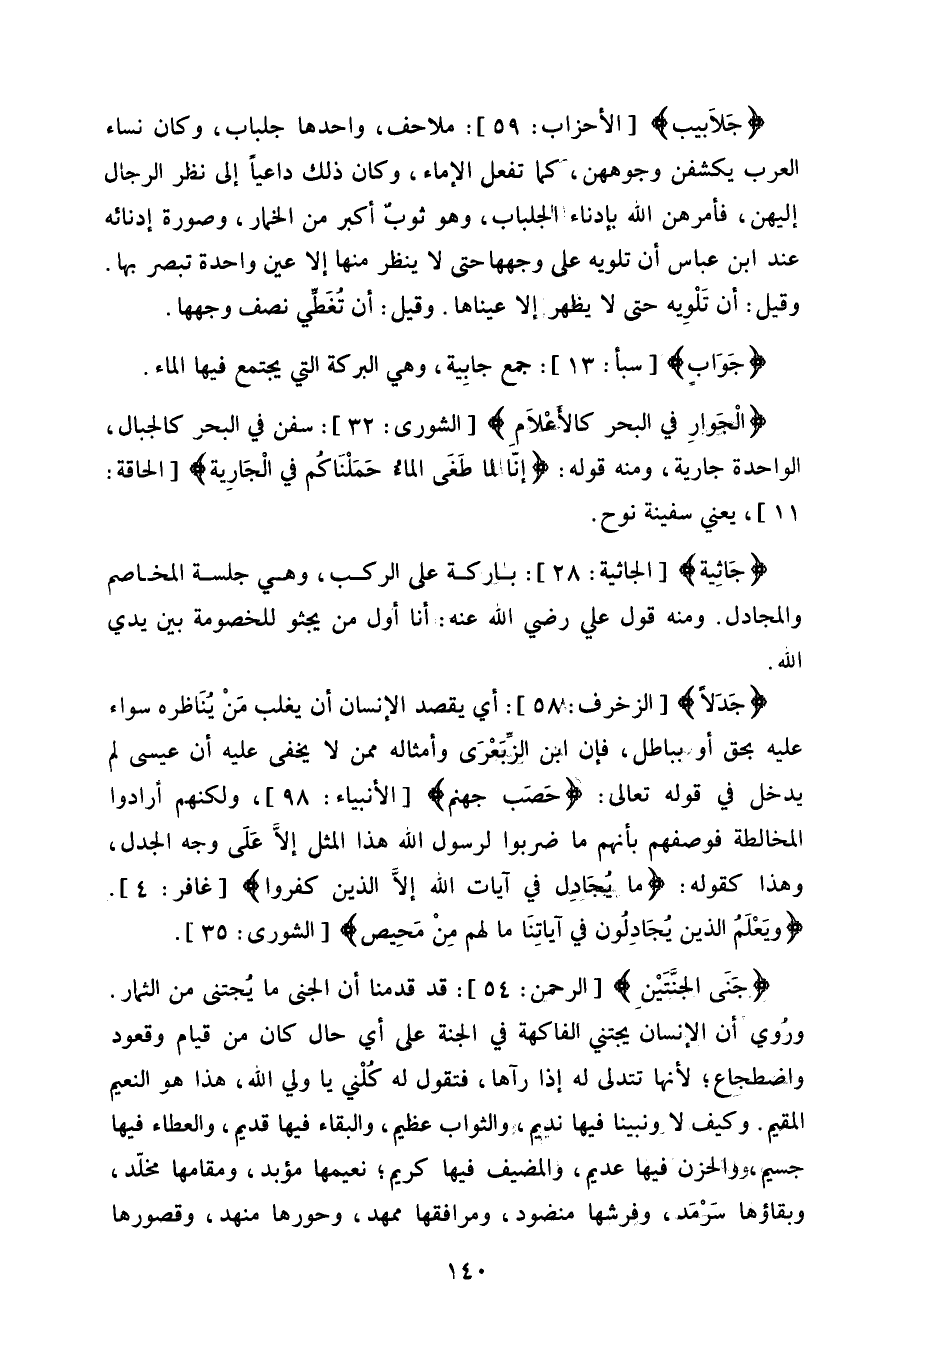 ﴿جَلاَبيب﴾ [الأحزاب: ٥٩]: ملاحف، واحدها جلباب، وكان نساء
العرب يكشفن وجوههن، كما تفعل الإماء، وكان ذلك داعياً إلى نظر الرجال
إليهن، فأمرهن الله بإدناء الجلباب، وهو ثوبٌ أكبر من الخمار، وصورة إدنائه
عند ابن عباس أن تلويه على وجهها حتى لا ينظر منها إلا عين واحدة تبصر بها.
وقيل: أن تَلْوِيه حتى لا يظهر إلا عيناها. وقيل: أن تُغَطِّي نصف وجهها.
﴿جَوَابٍ﴾ [سبأ: ١٣]: جمع جابِية، وهي البركة التي يجتمع فيها الماء.
﴿الْجَوارِ في البحر كالأَعْلاَمِ﴾ [الشورى: ٣٢]: سفن في البحر كالجبال،
الواحدة جارية، ومنه قوله: ﴿إنّا لما طَغَى الماءُ حَمَلْنَاكُم في الْجَارِية﴾ [الحاقة:
١١]، يعني سفينة نوح.
﴿جَاثِية﴾ [الجاثية: ٢٨]: باركة على الركب، وهي جلسة المخاصم
والمجادل. ومنه قول علي رضي الله عنه: أنا أول من يجثو للخصومة بين يدي
الله.
﴿جَدَلاً﴾ [الزخرف: ٥٨]: أي يقصد الإنسان أن يغلب مَنْ يُنَاظره سواء
عليه بحق أو بباطل، فإن ابن الزِّبَعْرَى وأمثاله ممن لا يخفى عليه أن عيسى لم
يدخل في قوله تعالى: ﴿حَصَب جهنم﴾ [الأنبياء: ٩٨]، ولكنهم أرادوا
المخالطة فوصفهم بأنهم ما ضربوا لرسول الله هذا المثل إلاَّ عَلَى وجه الجدل،
وهذا كقوله: ﴿ما يُجَادِل في آيات الله إلاَّ الذين كفروا﴾ [غافر: ٤].
﴿ويَعْلَمُ الذين يُجَادِلُون في آياتِنَا ما لهم مِنْ مَحِيص﴾ [الشورى: ٣٥].
﴿جَنَى الجَنَّتَيْنِ﴾ [الرحمن: ٥٤]: قد قدمنا أن الجنى ما يُجتنى من الثمار.
ورُوي أن الإنسان يجتني الفاكهة في الجنة على أي حال كان من قيام وقعود
واضطجاع؛ لأنها تتدلى له إذا رآها، فتقول له كُلْني يا ولي الله، هذا هو النعيم
المقيم. وكيف لا ونبينا فيها نديم، والثواب عظيم، والبقاء فيها قديم، والعطاء فيها
جسيم، والحزن فيها عديم، والمضيف فيها كريم؛ نعيمها مؤبد، ومقامها مخلّد،
وبقاؤها سَرْمَد، وفرشها منضود، ومرافقها ممهد، وحورها منهد، وقصورها
١٤٠